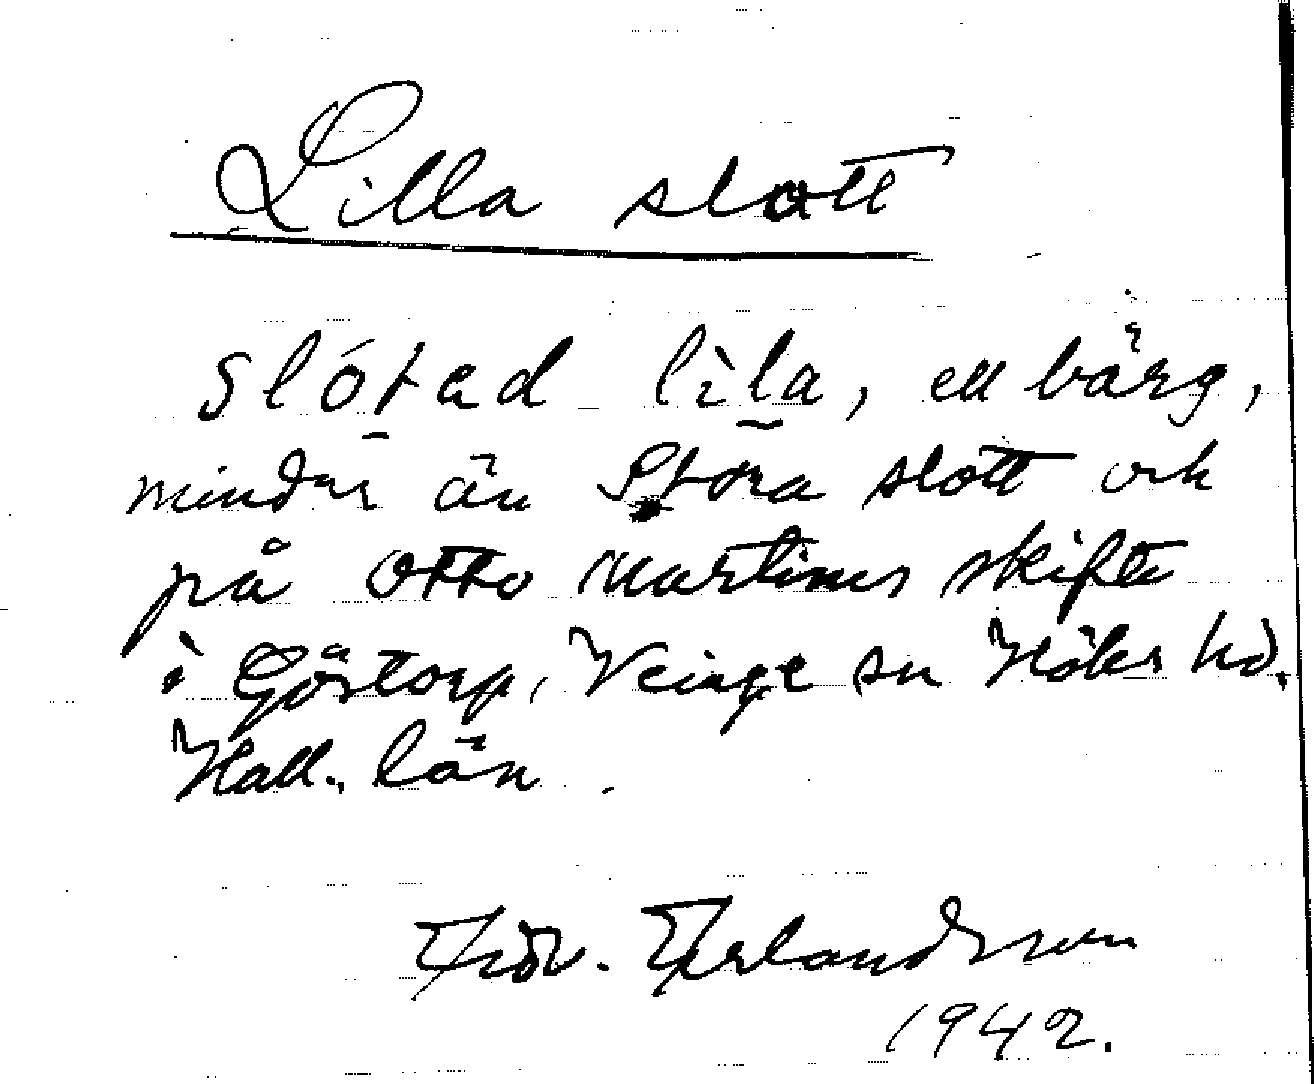 Lilla slott
slótad lìla, ett bärg,
mindre än Stora slott och
på Otto Martinus skifte
i Göstorp, Veinge sn Höks hd.
Hall. län.
Erlandsson
1942.